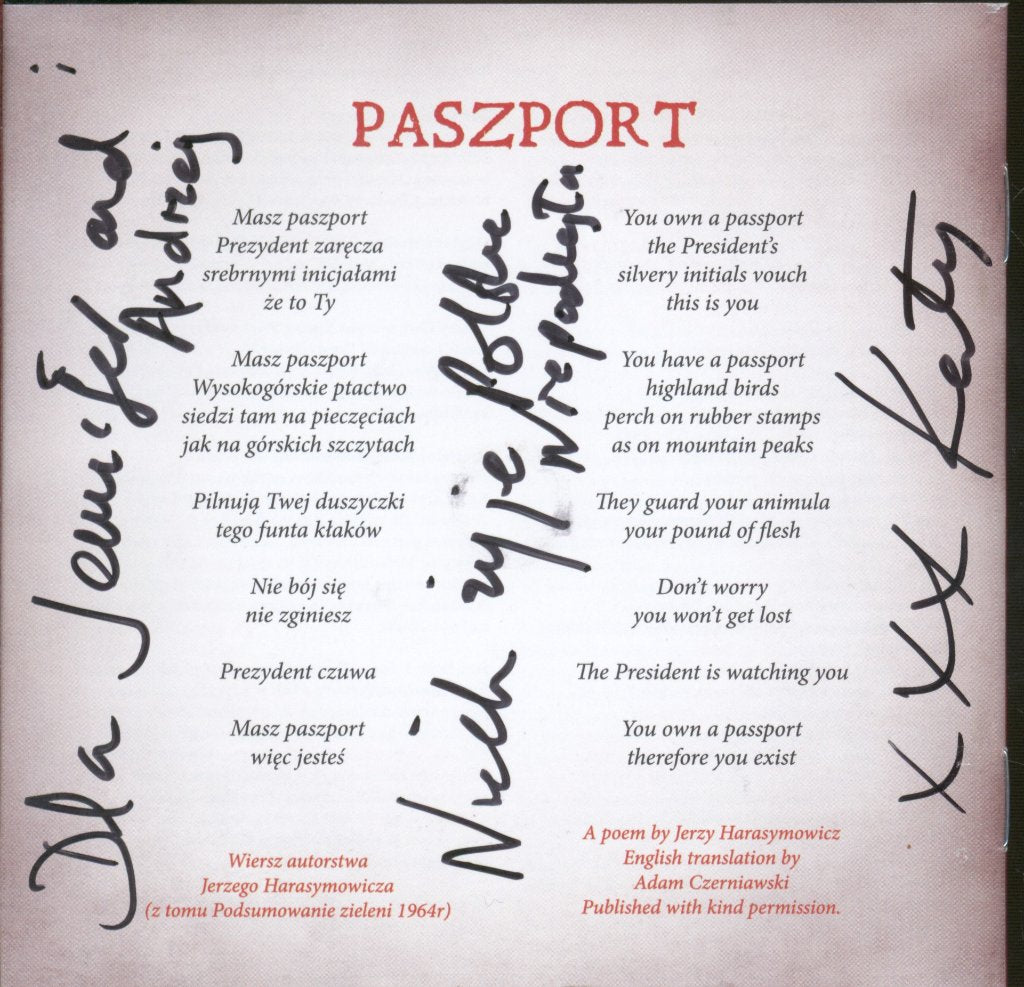 PASZPORT
Masz paszport
Prezydent zaręcza
srebrnymi inicjałami
że to Ty
Masz paszport
Wysokogórskie ptactwo
siedzi tam na pieczęciach
jak na górskich szczytach
Pilnują Twej duszyczki
tego funta kłaków
Nie bój się
nie zginiesz
Prezydent czuwa
Masz paszport
więc jesteś
Wiersz autorstwa
Jerzego Harasymowicza
(z tomu Podsumowanie zieleni 1964r)
You own a passport
the President's
silvery initials vouch
this is you
You have a passport
highland birds
perch on rubber stamps
as on mountain peaks
They guard your animula
your pound of flesh
Don't worry
you won't get lost
The President is watching you
You own a passport
therefore you exist
A poem by Jerzy Harasymowicz
English translation by
Adam Czerniawski
Published with kind permission.
Dla Jennifer and
Andrzej
Niech żyje Polska
Niepodległa
XXXX Katy